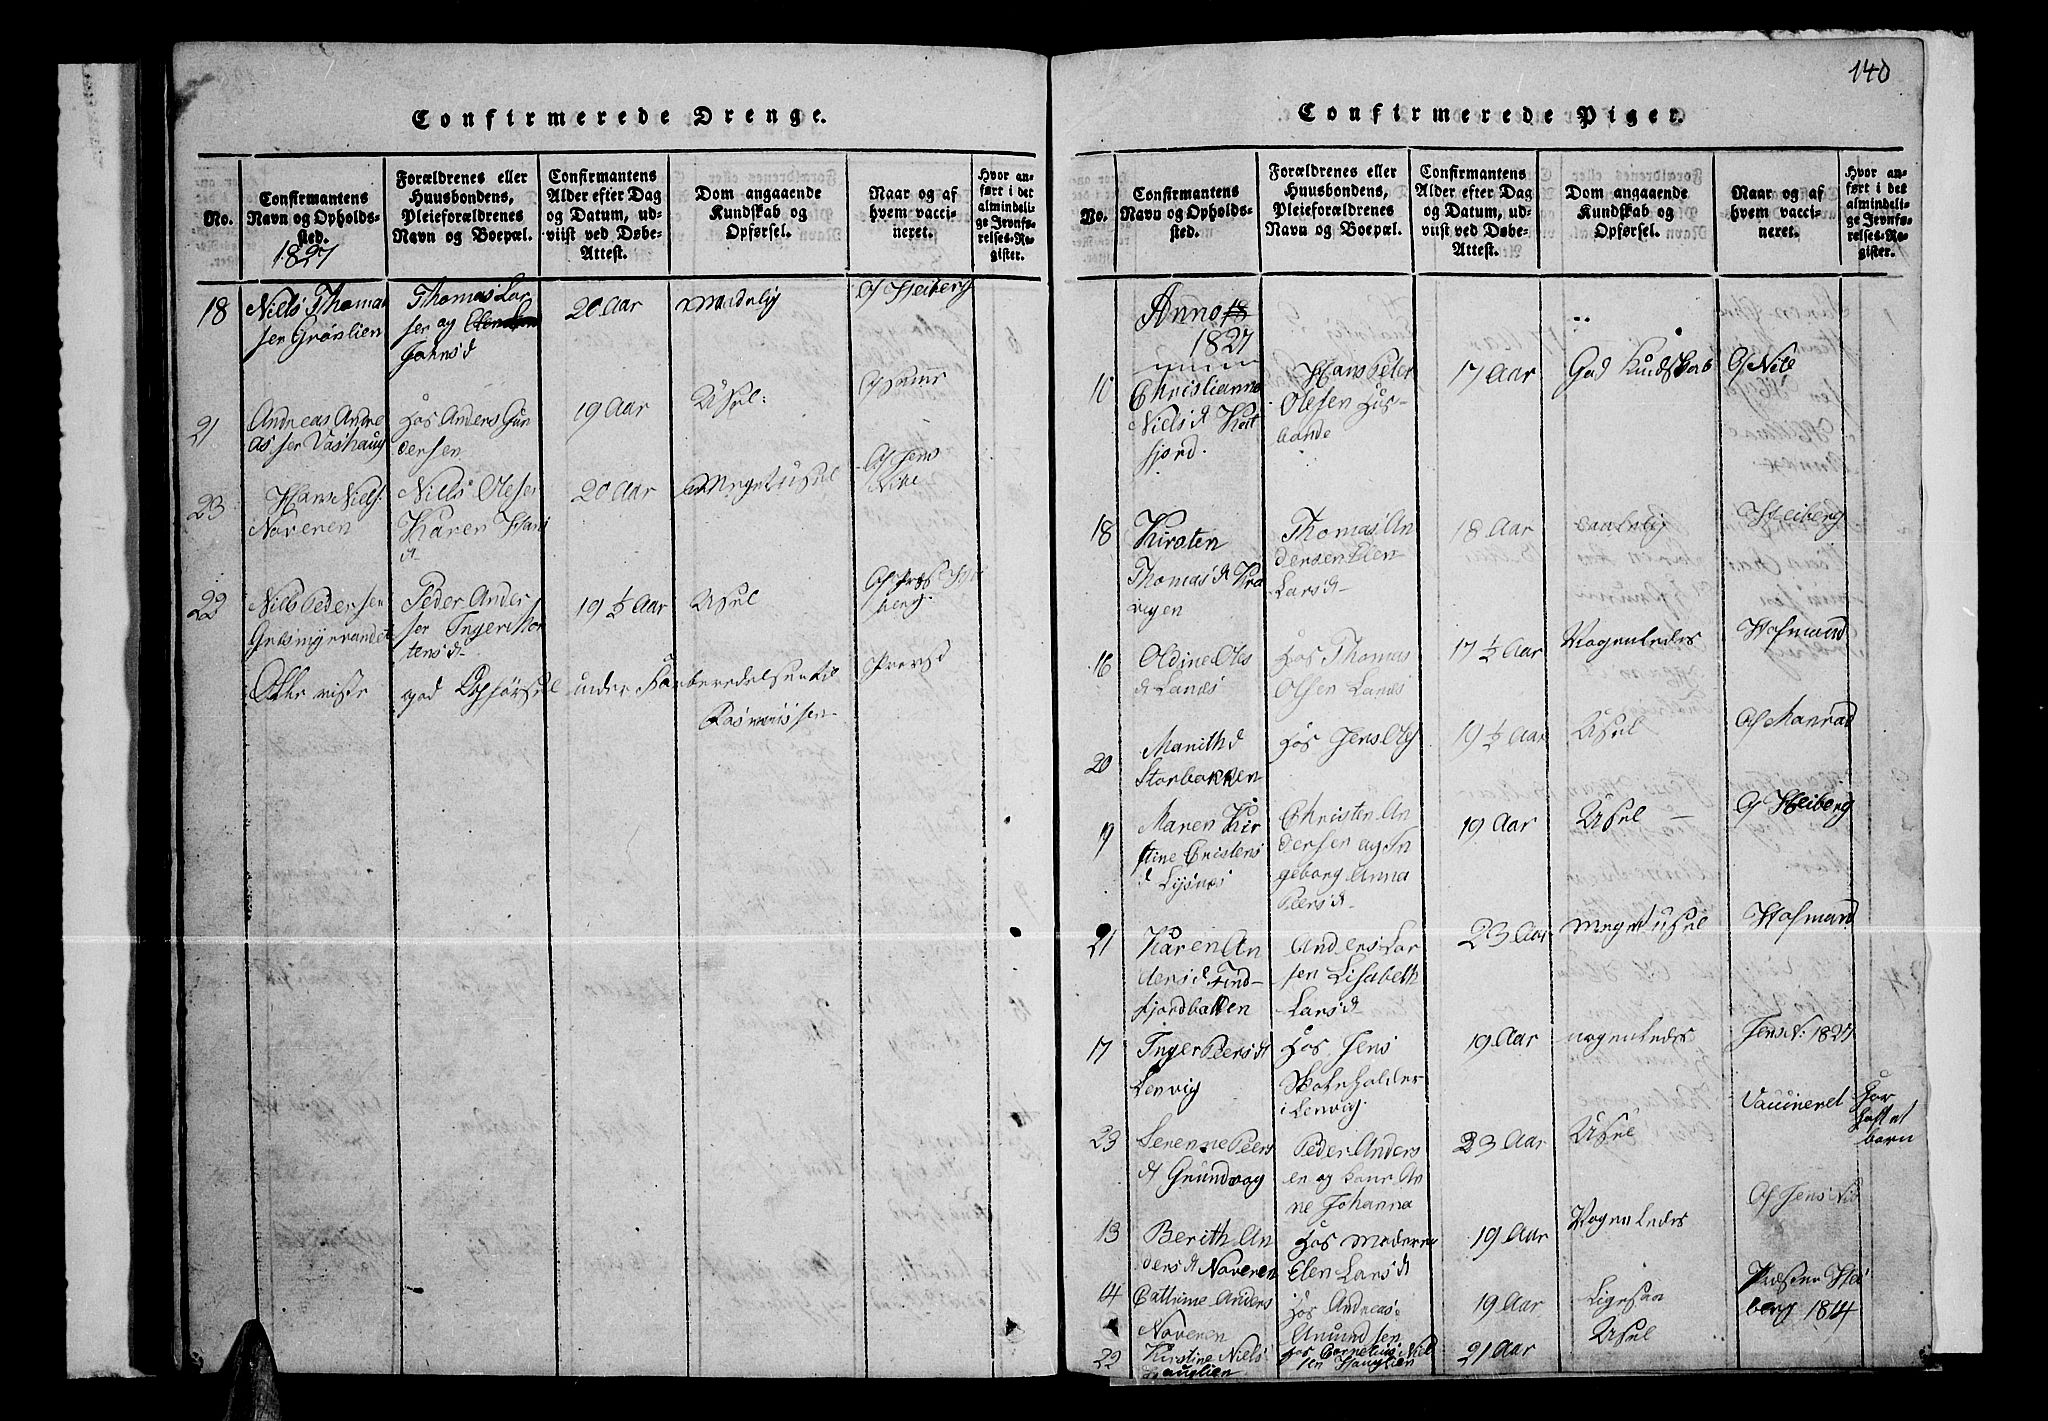 140
Confirmerede Drenge.
No.
Confirmantens
Navn og Opholds-
sted.
Forældrenes eller
Huusbondens,
Pleieforældrenes
Navn og Boepæl.
Confirmantens
Alder efter Dag
og Datum, ud-
viist ved Døbe-
Attest.
Dom angaaende
Kundskab og
Opførsel.
Naar og af
hvem vacci-
neret.
Hvor an-
ført i det
almindeli-
ge Jevnfø-
relses-Re-
gister.
1827
18
Niels Thoma
sen Grønlien
Thomas Lar
sen og
Johnsd
20 Aar
Maadelig
Af Heiberg
21
Andreas Andre
as sen Vashaug
hos Anders Gun
dersen
19 Aar
Usel:
23
Hans Niels:
Noveren
Niels Olesen
Karen Hans
d
20 Aar
Meget usel
Af Jens
22
Niels Pedersen
Peder Ander
sen Inger Mor
tensd
19 ½ Aar
Usel
Ikke
god Opførsel
under Forberedelsen til
Rasmussen
Confirmerede Piger.
No.
Confirmantens
Navn og Opholds-
sted.
Forældrenes eller
Huusbondens,
Pleieforældrenes
Navn og Boepæl.
Confirmantens
Alder efter Dag
og Datum, ud-
viist ved Døbe-
Attest.
Dom angaaende
Kundskab og
Opførsel.
Naar og af
hvem vacci-
neret.
Hvor an-
ført i det
almindeli-
ge Jevnfø-
relses-Re-
gister.
Anno 18
1827
Christianna
Niels d
fjord.
Hans Peter
Olesen Hus-
bonde
17 Aar
God Kundskab
18
Kirsten
Thomas d
Thomas An
dersen Elen
Lars d
18 Aar
Heiberg
16
Oldine Ols
d Lanes
hos Thomas
Olsen Lanes
17 ½ Aar
Nogenledes
Hofmand
20
Marith d
Storbakken
hos Jens Ols
19 ½ Aar
Usel
Af Manrad
19
Maren Kir
stine Cristens
d Lysnes
Christen An
dersen og In
geborg Anna
Peers d
19 Aar
Usel
Af Heiberg
21
Karen An
ders d Find
fjordbatten
Anders Lar
sen Lisabeth
Lars d
23 Aar
Meget usel
Hofmand
17
Inger Peers d
Lenvig
hos Jens
Skoleholder
i Lenvig
19 Aar
nogenledes
Jens N: 1827
23
Serenne Peers
d Grundvog
Peder Anders
en og
ne Johanna
23 Aar
Usel
Vaccineret
13
Berith An
ders d Noveren
hos Moderen
Elen Lars d
19 Aar
Nogenledes
Af Jens
14
Cathrine Anders
Noveren
hos Andreas
Amundsen
19 Aar
Ligesaa
Præsten Hei
berg 1814
22
Kirstine Niels
Hauglien
hos Cornelius Niel
sen Hauglien
21 Aar
Usel